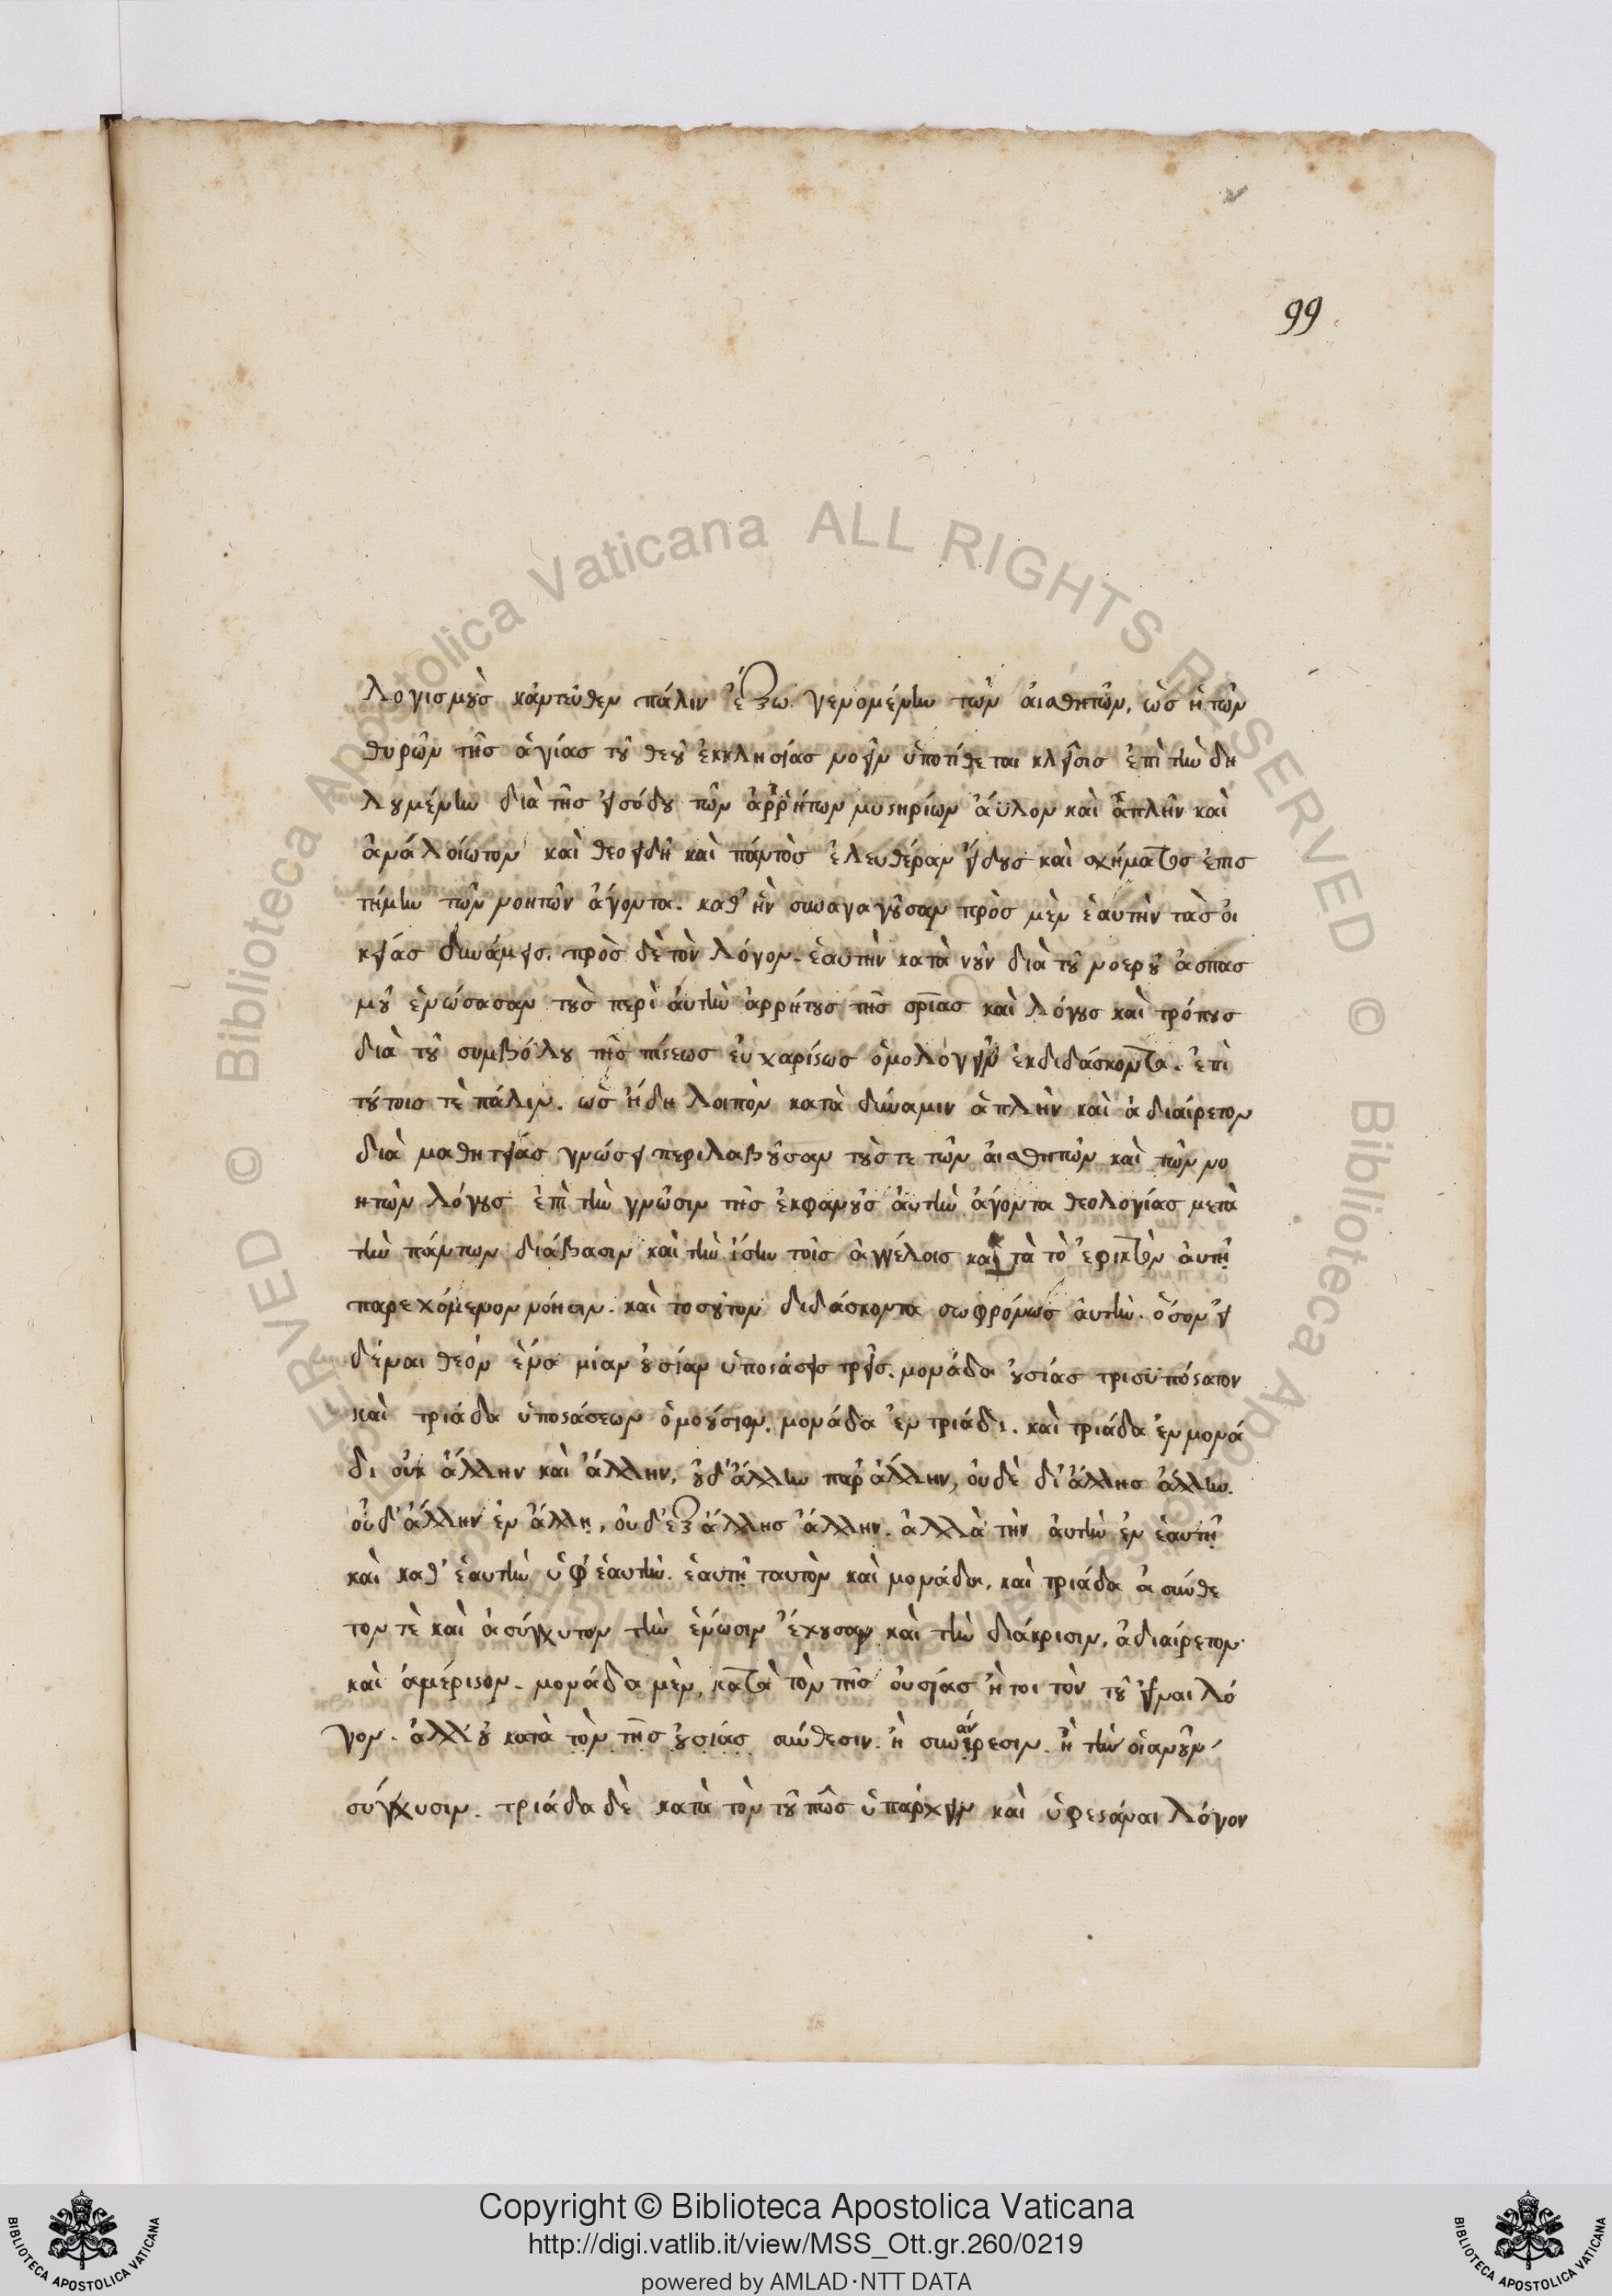 99
λογισμοὺς κἀντεῦθεν πάλιν ἔξω γενομένην τῶν αἰσθητῶν, ὡς ἡ τῶν
θυρῶν τῆς ἁγίας τοῦ θεοῦ ἐκκλησίας νοεῖν ὑποτίθεται κλεῖσις ἐπὶ τὴν δη
λουμένην διὰ τῆς εἰσόδου τῶν ἀρρήτων μυστηρίων ἄϋλον καὶ ἁπλῆν καὶ
ἀναλοίωτον καὶ θεοειδῆ καὶ παντὸς ἐλευθέραν εἴδους καὶ σχήματος ἐπισ
τήμην τῶν νοητῶν ἄγοντα. καθ' ἣν συναγαγοῦσαν πρὸς μὲν ἑαυτὴν τὰς οἰ
κείας δυνάμεις. πρὸς δὲ τὸν λόγον. ἑαυτὴν κατὰ νοῦν διὰ τοῦ νοεροῦ ἀσπασ
μοῦ ἑνώσασαν τοὺς περὶ αὐτὴν ἀρρήτους τῆς σρίας καὶ λόγους καὶ τρόπους
διὰ τοῦ συμβόλου τῆς πίστεως εὐχαρίστως ὁμολογεῖν ἐκδιδάσκοντα. ἐπὶ
τούτοις τὲ πάλιν. ὡς ἤδη λοιπὸν κατὰ δύναμιν ἁπλῆν καὶ ἀδιαίρετον
διὰ μαθητείας γνώσει περιλαβοῦσαν τούς τε τῶν αἰσθητῶν καὶ τῶν νο
ητῶν λόγους ἐπὶ τὴν γνῶσιν τῆς ἐκφανοῦς αὐτὴν ἄγοντα θεολογίας μετὰ
τὴν πάντων διάβασιν καὶ τὴν ἴσην τοῖς ἀγγέλοις κατὰ τὸ ἐφικτὸν αὐτῇ
παρεχόμενον νόησιν. καὶ τοσοῦτον διδάσκοντα σωφρόνως αὐτὴν. ὅσον εἰ
δέναι θεὸν ἕνα μίαν οὐσίαν ὑποστάσεις τρεῖς. μονάδα οὐσίας τρισυπόστατον
καὶ τριάδα ὑποστάσεων ὁμοούσιον. μονάδα ἐν τριάδι. καὶ τριάδα ἐν μονά
δι οὐκ ἄλλην καὶ ἄλλην, οὐδ' ἄλλην παρ' ἄλλην, οὐδὲ δι' ἄλλης ἄλλην.
οὐδ' ἄλλην ἐν ἄλλῃ, οὐδ' ἐξ ἄλλης ἄλλην. ἀλλὰ τὴν αὐτὴν ἐν ἑαυτῇ
καὶ καθ' ἑαυτὴν ὑφ' ἑαυτὴν. ἑαυτῇ ταυτὸν καὶ μονάδα, καὶ τριάδα ἀσύνθε
τον τὲ καὶ ἀσύγχυτον τὴν ἕνωσιν ἔχουσαν καὶ τὴν διάκρισιν. ἀδιαίρετον
καὶ ἀμέριστον. μονάδα μὲν, κατὰ τὸν τῆς οὐσίας ἤτοι τὸν τοῦ εἶναι λό
γον. ἀλλ' οὐ κατὰ τὸν τῆς οὐσίας σύνθεσιν. ἢ συναίρεσιν. ἢ τὴν οἱανοῦν
σύγχυσιν. τριάδα δὲ κατὰ τὸν τοῦ πῶς ὑπάρχειν καὶ ὑφεστάναι λόγον
Copyright © Biblioteca Apostolica Vaticana
http://digi.vatlib.it/view/MSS_Ott.gr.260/0219
powered by AMLAD·NTT DATA